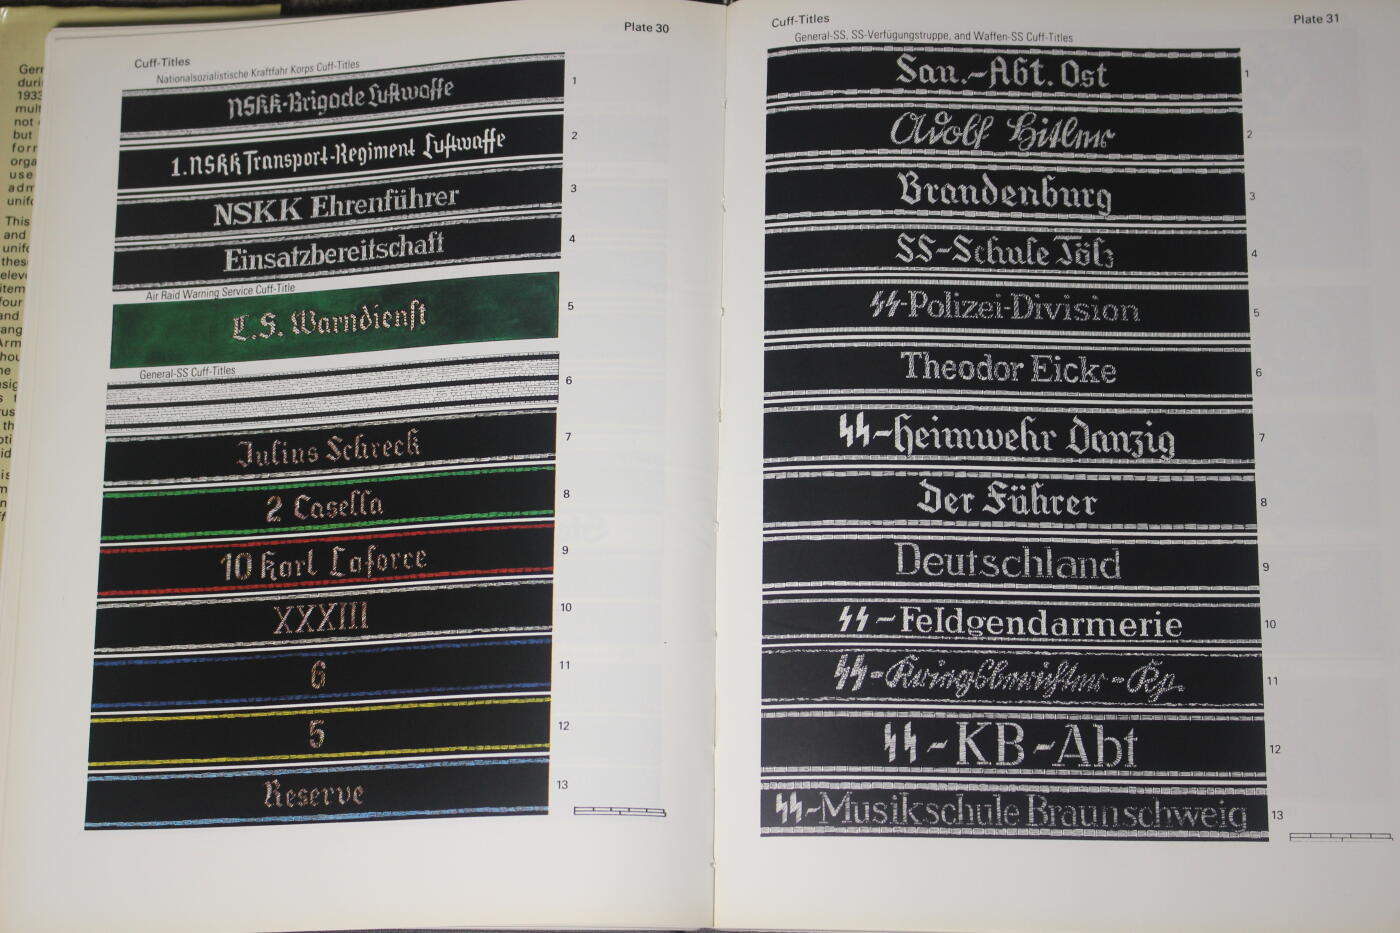 Germ
duri
1933
mult
not
but
forn
orga
use
adm
unifo
This
and
unifo
thes
eleve
item
four
and
ang
Arm
hou
ne
nsig
s t
rus
th
oti
id
Plate 30
Cuff-Titles
Nationalsozialistische Kraftfahr Korps Cuff-Titles
NSKK-Brigade Luftwaffe 1
1.NSKK Transport-Regiment Luftwaffe 2
NSKK Ehrenführer 3
Einsatzbereitschaft 4
Air Raid Warning Service Cuff-Title
L.S. Warndienst 5
General-SS Cuff-Titles
6
Julius Schreck 7
2 Casella 8
10 Karl Laforce 9
XXXIII 10
6 11
5 12
Reserve 13
Cuff-Titles
Plate 31
General-SS, SS-Verfügungstruppe, and Waffen-SS Cuff-Titles
San.-Abt. Ost 1
Adolf Hitler 2
Brandenburg 3
SS-Schule Tölz 4
SS-Polizei-Division 5
Theodor Eicke 6
SS-Heimwehr Danzig 7
Der Führer 8
Deutschland 9
SS-Feldgendarmerie 10
SS-Kriegsberichter-Kp. 11
SS-KB-Abt 12
SS-Musikschule Braunschweig 13